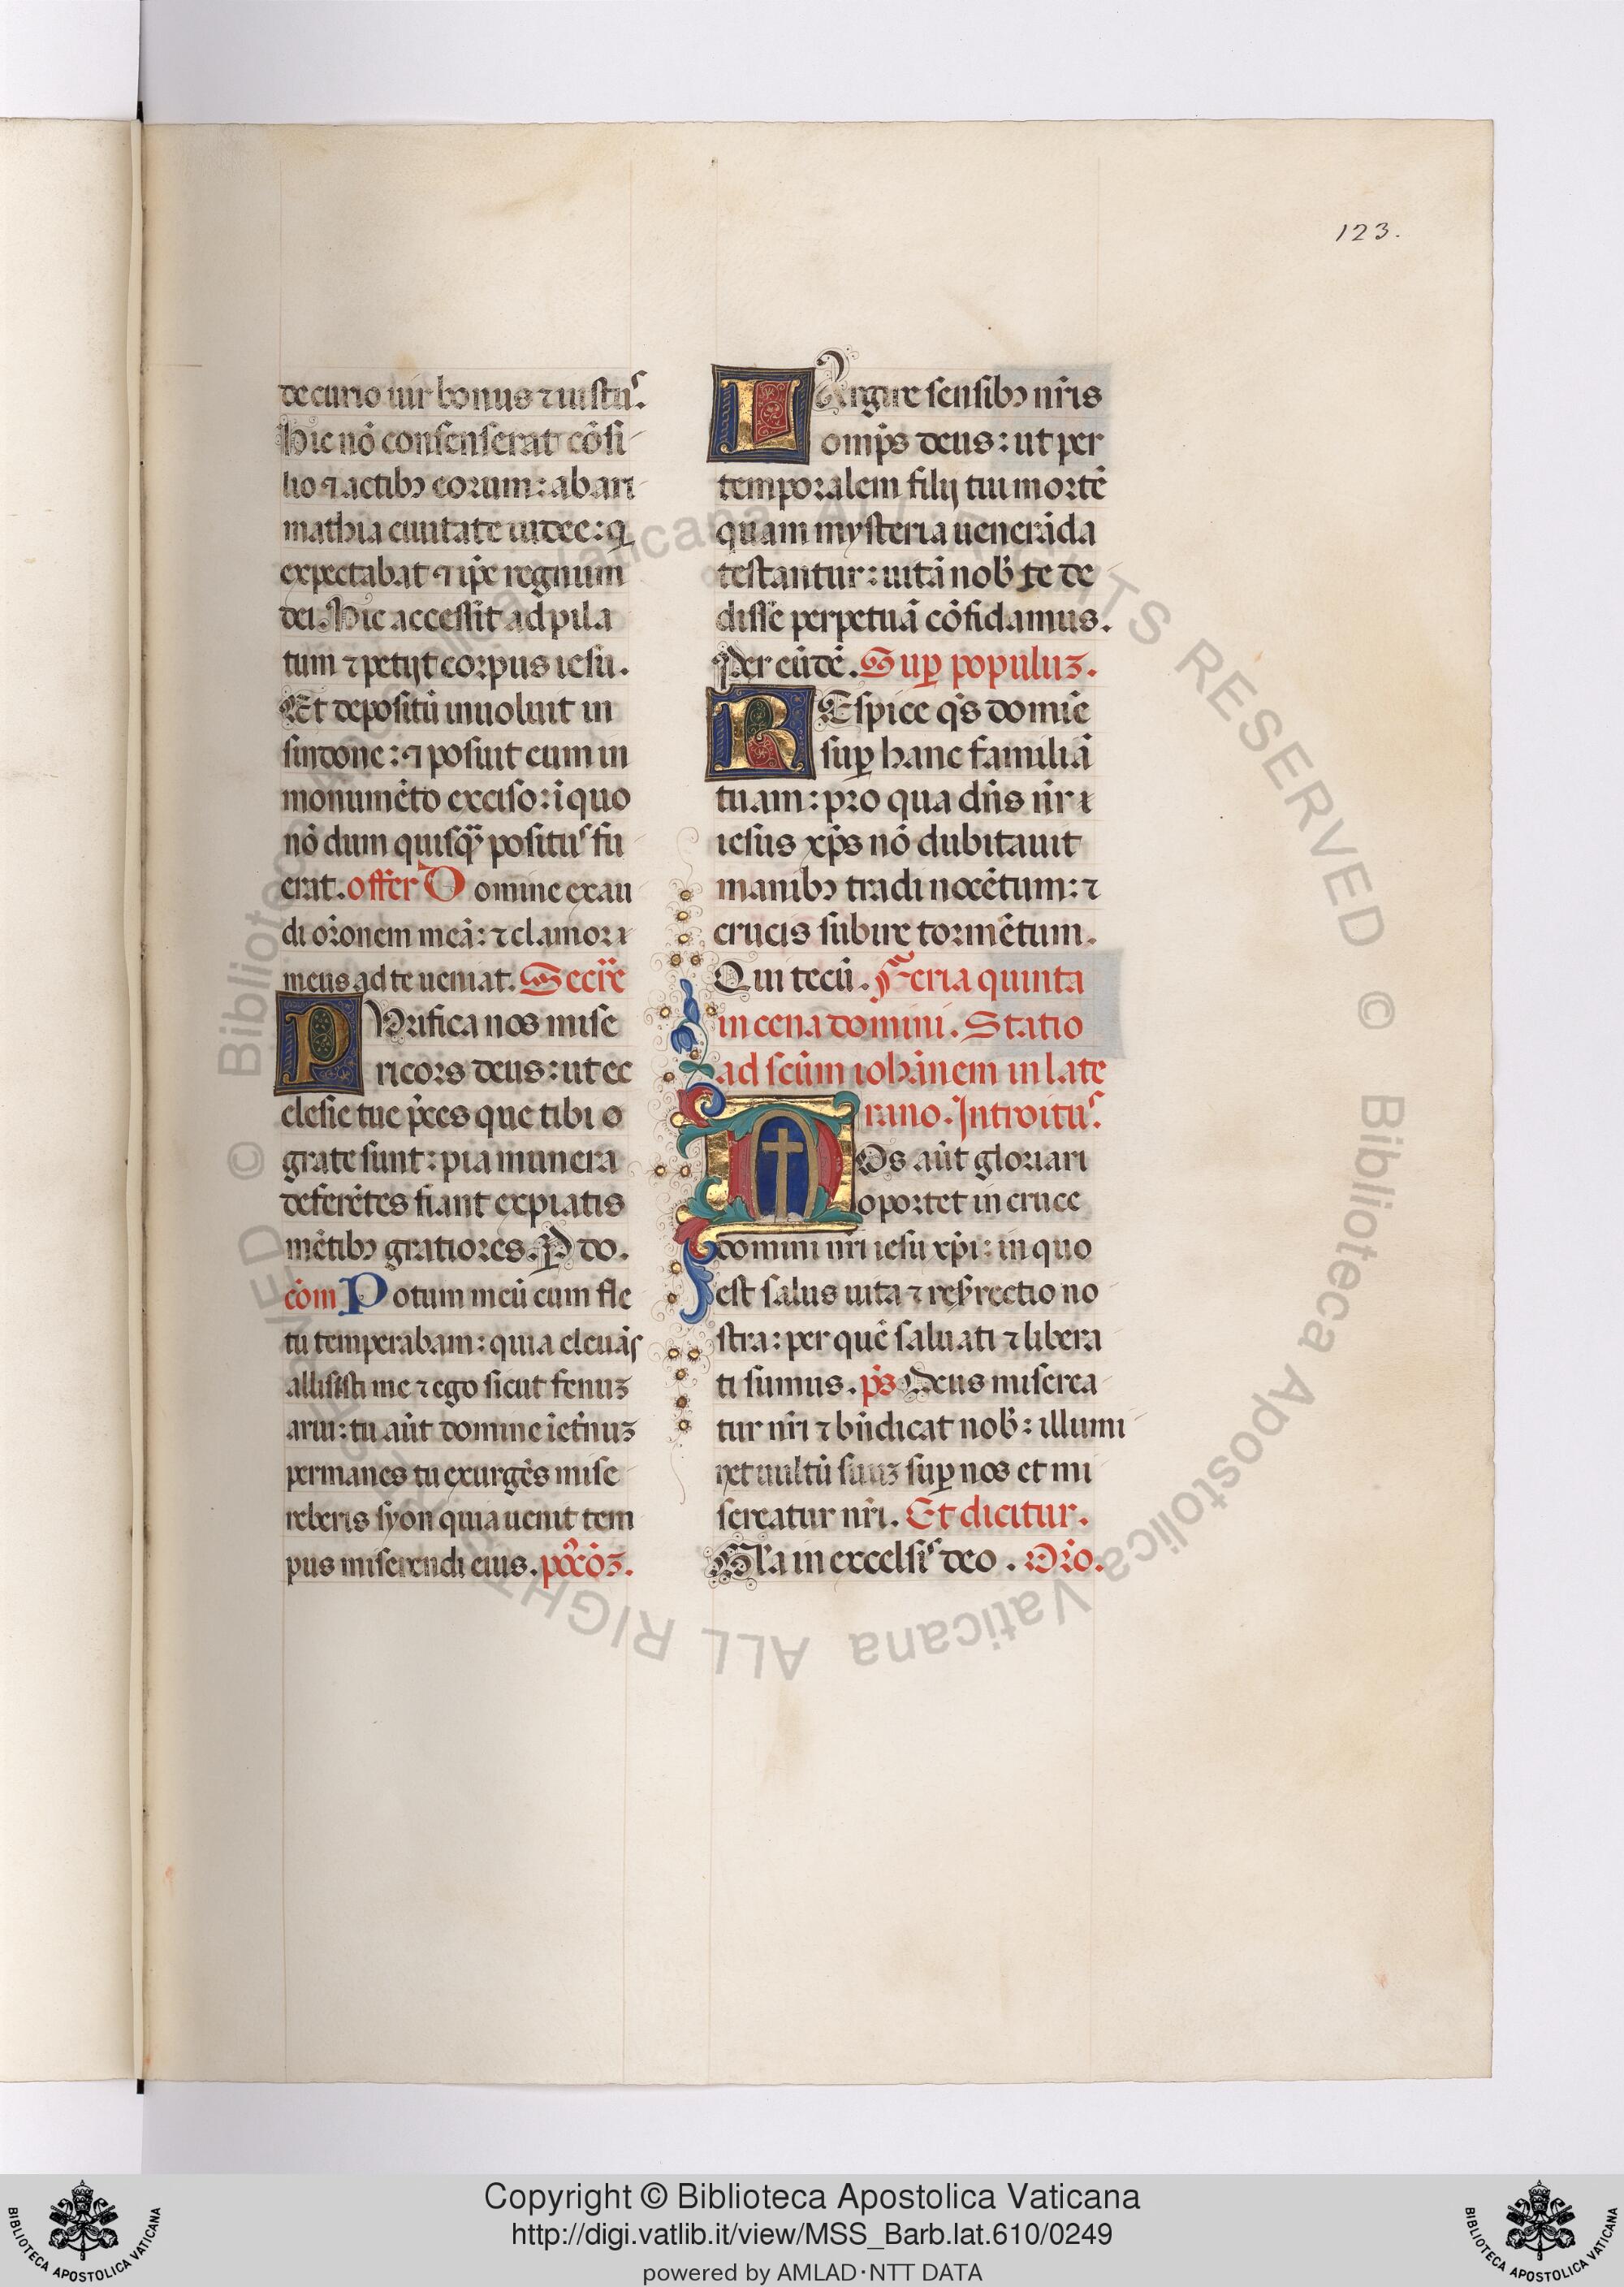 123.
decurio uir bonus ⁊ iustus.
Hic nō consenserat cōsi
lio ⁊ actibꝫ eorum: ab ari
mathia ciuitate iudee: q
expectabat ⁊ ip̄e regnum
dei. Hic accessit ad pila
tum ⁊ petijt corpus iesu.
Et depositū inuoluit in
sindone: ⁊ posuit eum in
monumēto exciso: ī quo
nō dum quisq̄ positus fu
erat. offer Domine exau
di or̄onem meā: ⁊ clamor
meus ad te ueniat. Secr̄e
PUrifica nos mise
ricors deus: ut ec
clesie tue p̄ces que tibi o
grate sunt: pia munera
deferētes fiant expiatis
mētibꝫ gratiores. P do.
com̄ Potum meū cum fle
tu temperabam: quia eleuās
allisisti me ⁊ ego sicut fenuꝫ
arui: tu aūt domine īeternuꝫ
permanes tu exurgēs mise
reberis syon quia uenit tem
pus miserendi eius. pꝰcōꝫ.
LArgire sensibꝫ nr̄is
omp̄s deus: ut per
temporalem filij tui mortē
quam mysteria uenerāda
testantur: uitā nob̄ te de
disse perpetuā cōfidamus.
Per eūdē. Suꝑ populuꝫ.
REspice qs̄ domīe
suꝑ hanc familiā
tuam: pro qua dn̄s nr̄
iesus xp̄s nō dubitauit
manibꝫ tradi nocētum: ⁊
crucis subire tormētum.
Qui tecū. Feria quinta
in cena domini. Statio
ad scūm iohānem in late
rano. Introitus.
NOs aūt gloriari
oportet in cruce
domini nr̄i iesu xp̄i: in quo
est salus uita ⁊ resr̄rectio no
stra: per quē saluati ⁊ libera
ti sumus. p̄s Deus miserea
tur nr̄i ⁊ bn̄dicat nob̄: illumi
net uultū suuꝫ suꝑ nos et mi
sereatur nr̄i. Et dicitur.
Gl̄a in excelsis deo. Or̄o.
© Biblioteca Apostolica Vaticana ALL RIGHTS RESERVED
Copyright © Biblioteca Apostolica Vaticana
http://digi.vatlib.it/view/MSS_Barb.lat.610/0249
powered by AMLAD·NTT DATA
BIBLIOTECA APOSTOLICA VATICANA
BIBLIOTECA APOSTOLICA VATICANA